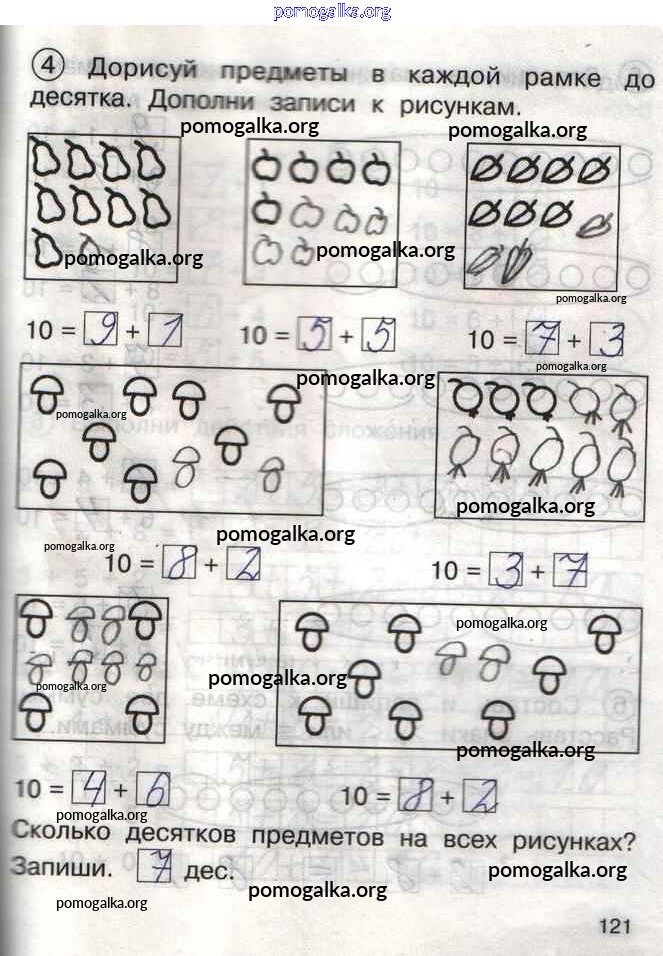 pomogalka.org
4 Дорисуй предметы в каждой рамке до
десятка. Дополни записи к рисункам.
pomogalka.org pomogalka.org
pomogalka.org pomogalka.org
pomogalka.org
10 = 9 + 1 10 = 5 + 5 10 = 7 + 3
pomogalka.org
pomogalka.org
pomogalka.org
pomogalka.org
pomogalka.org
pomogalka.org
10 = 8 + 2 10 = 3 + 7
pomogalka.org
pomogalka.org
pomogalka.org
pomogalka.org
10 = 4 + 6 10 = 8 + 2
pomogalka.org
Сколько десятков предметов на всех рисунках?
Запиши. 7 дес.
pomogalka.org
pomogalka.org
pomogalka.org
121